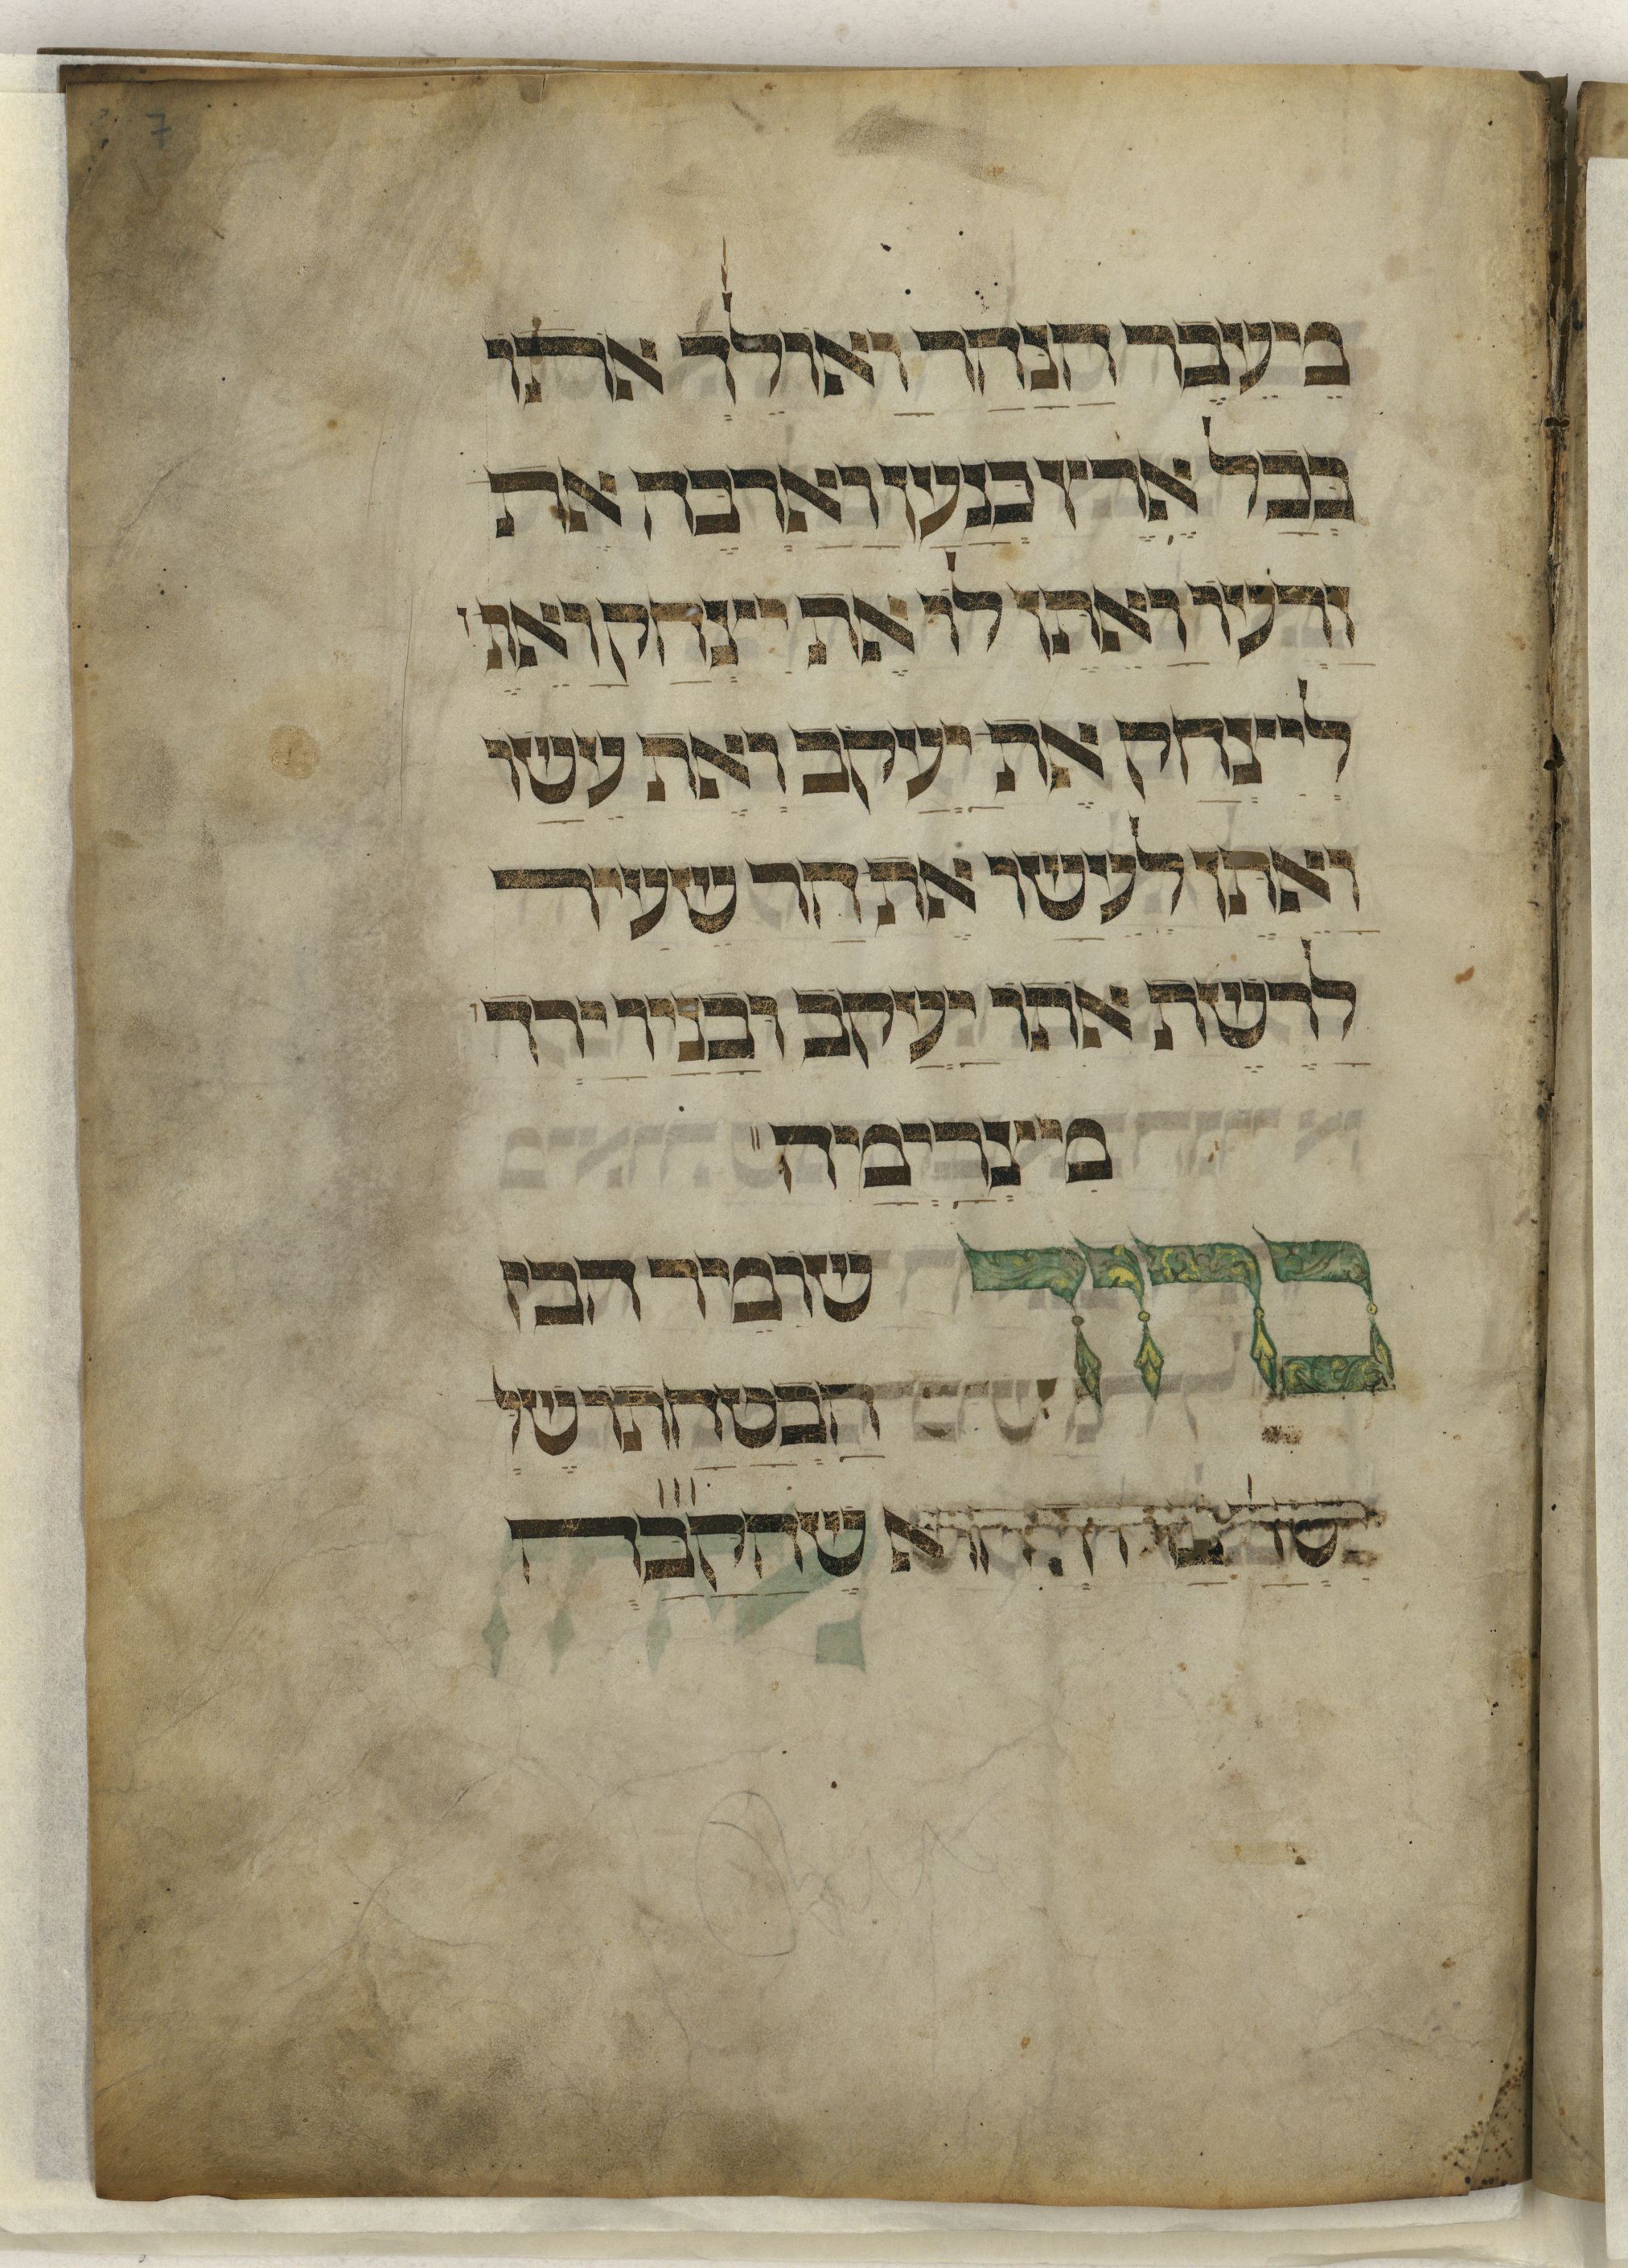 מיעבר הנהר ואולך אותו
בכל ארץ כנען וארבה את
זרעו ואתן לו את יצחק ואתן
לייצחק את יעקב ואת עשו
ואתן לעשו את הר שעיר
לרשת אתו יעקב ובניו ירדו
מיצרימה
ברוך שומיר הבט
הבטחתו
הוא שהקבה